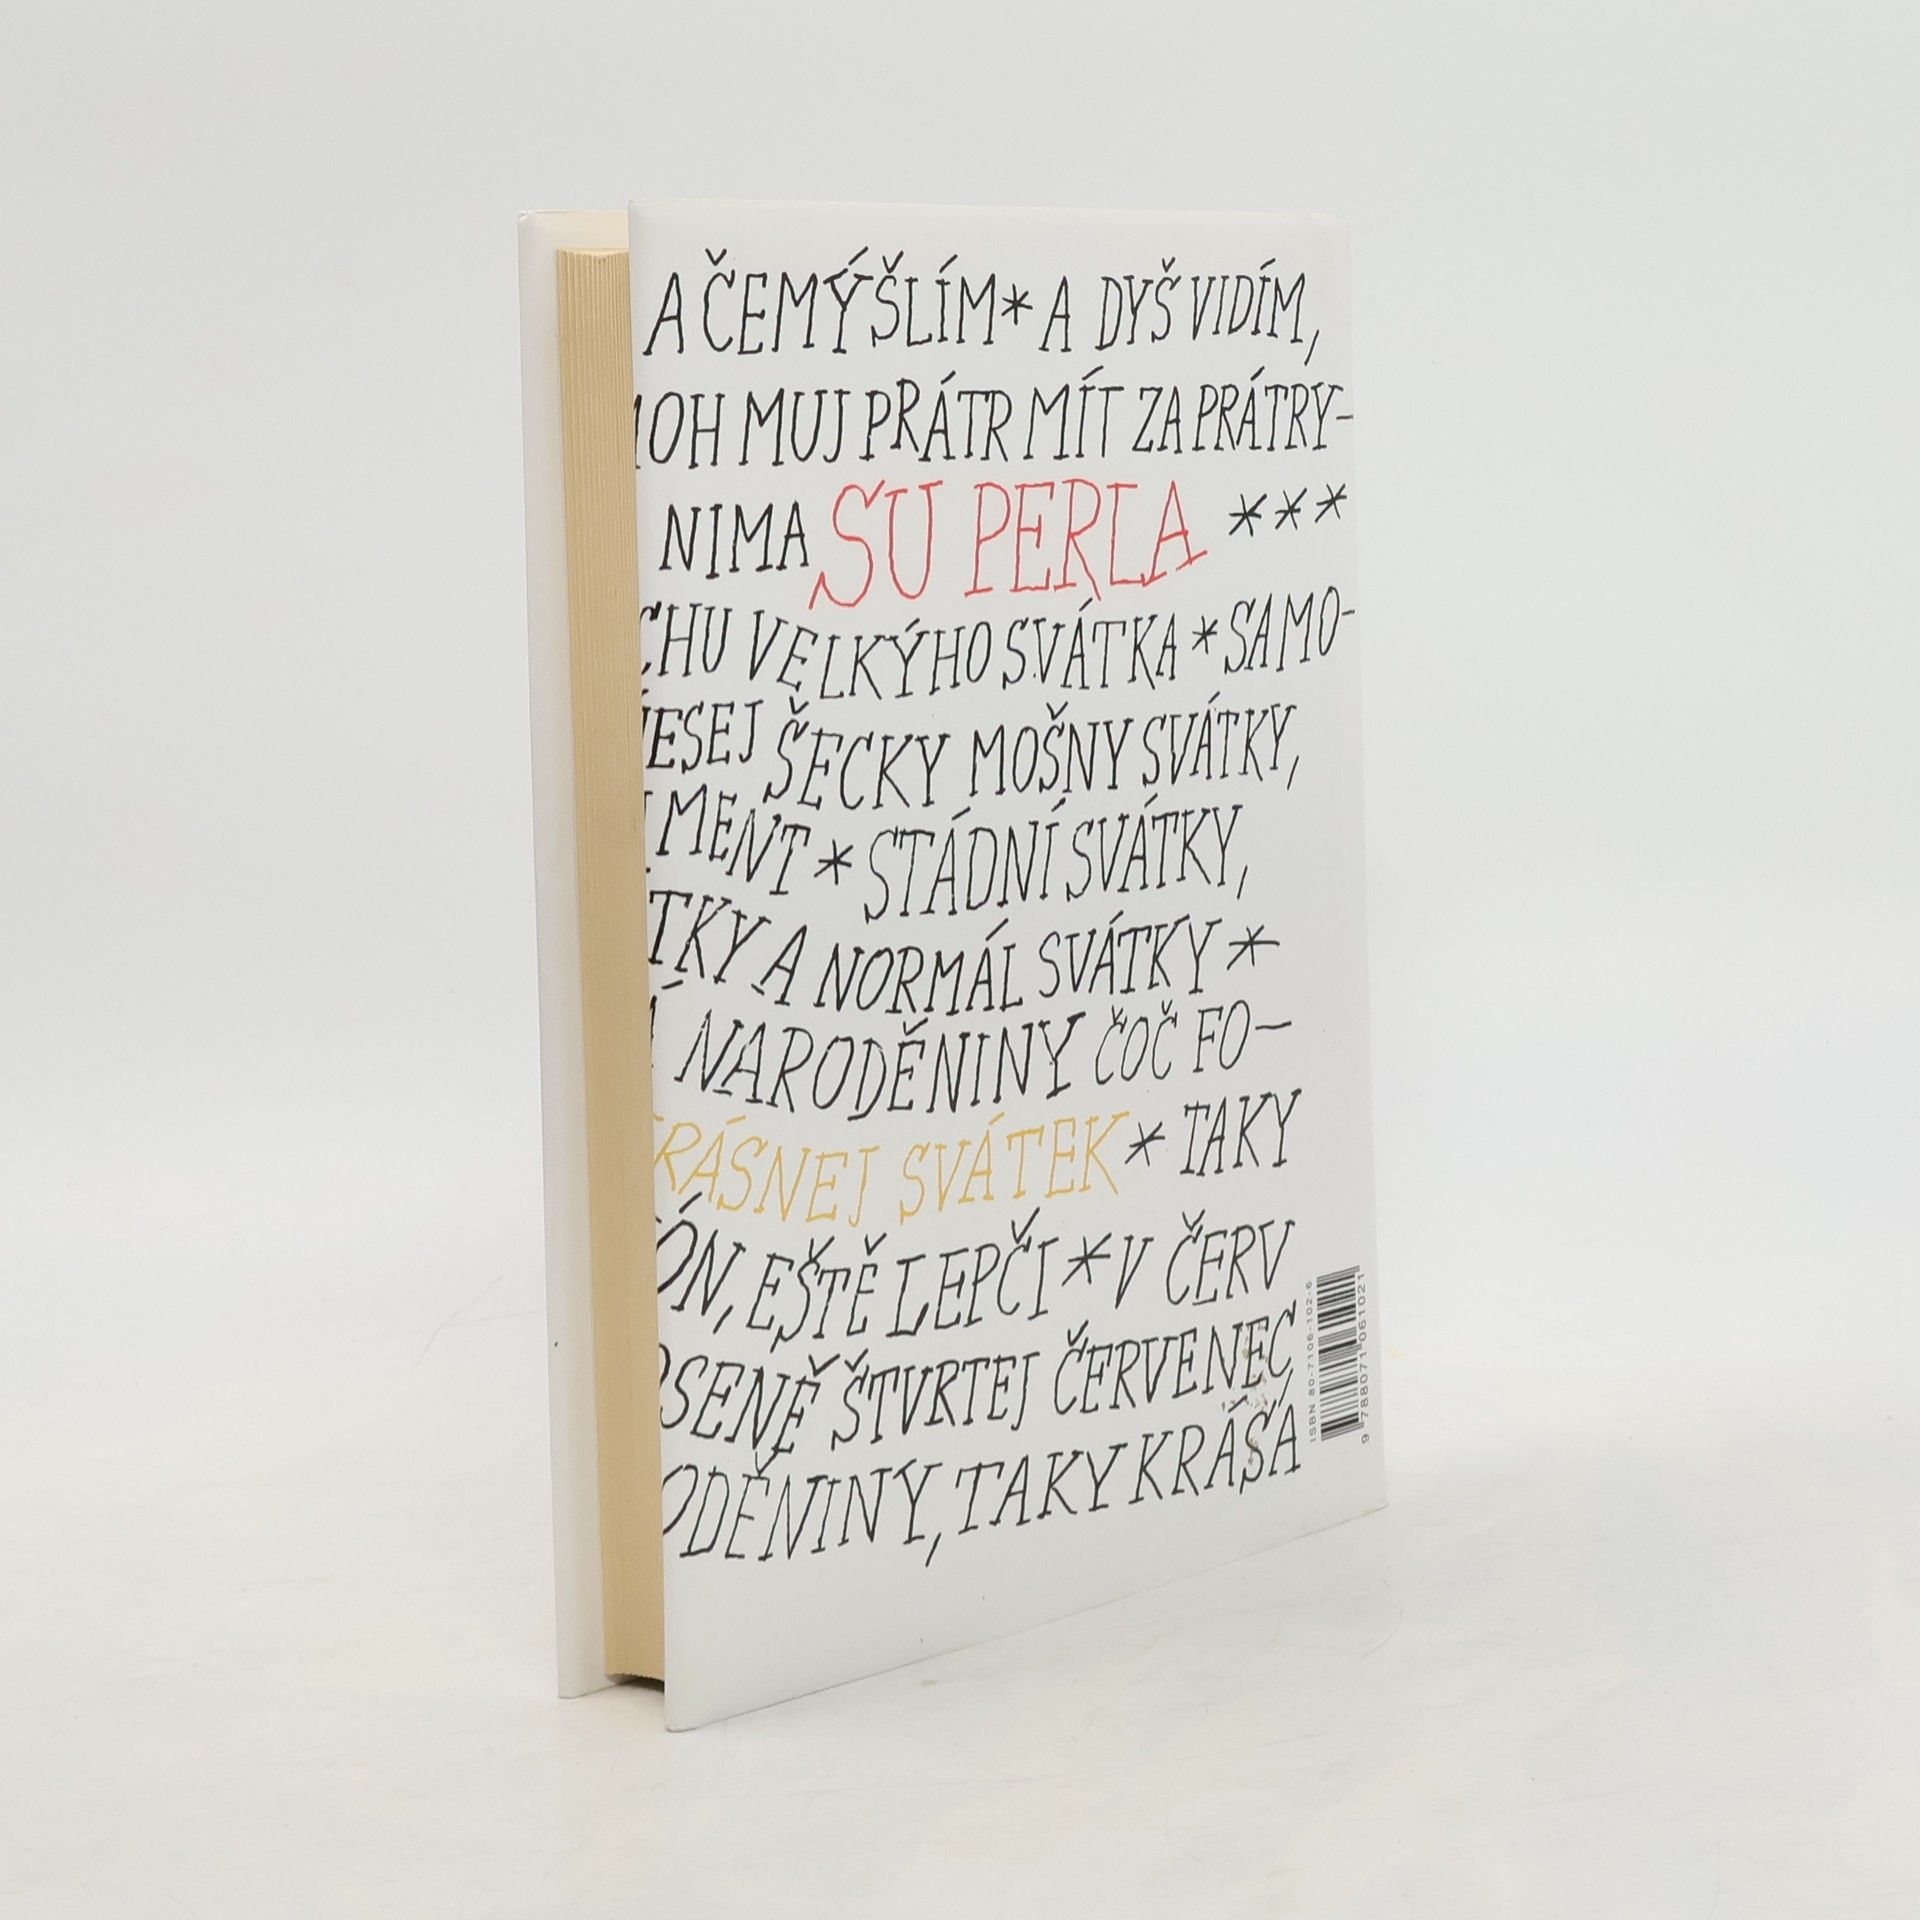 A ČEMÝŠLÍM * A DYŠ VIDÍM,
MOH MUJ PRÁTR MÍT ZA PRÁTRY-
NIMA SU PERLA ***
CHU VELKÝHO SVÁTKA * SAMO-
ESEJ ŠECKY MOŠNY SVÁTKY,
MENT * STÁDNÍ SVÁTKY,
TKY A NORMÁL SVÁTKY *
NARODĚNINY ČOČ FO-
RÁSNEJ SVÁTEK * TAKY
ÓN, EŠTĚ LEPČI * V ČERV
SENĚ ŠTVRTEJ ČERVENEC
ODĚNINY, TAKY KRÁSÁ
ISBN 80-7106-102-6
9 788071 061021